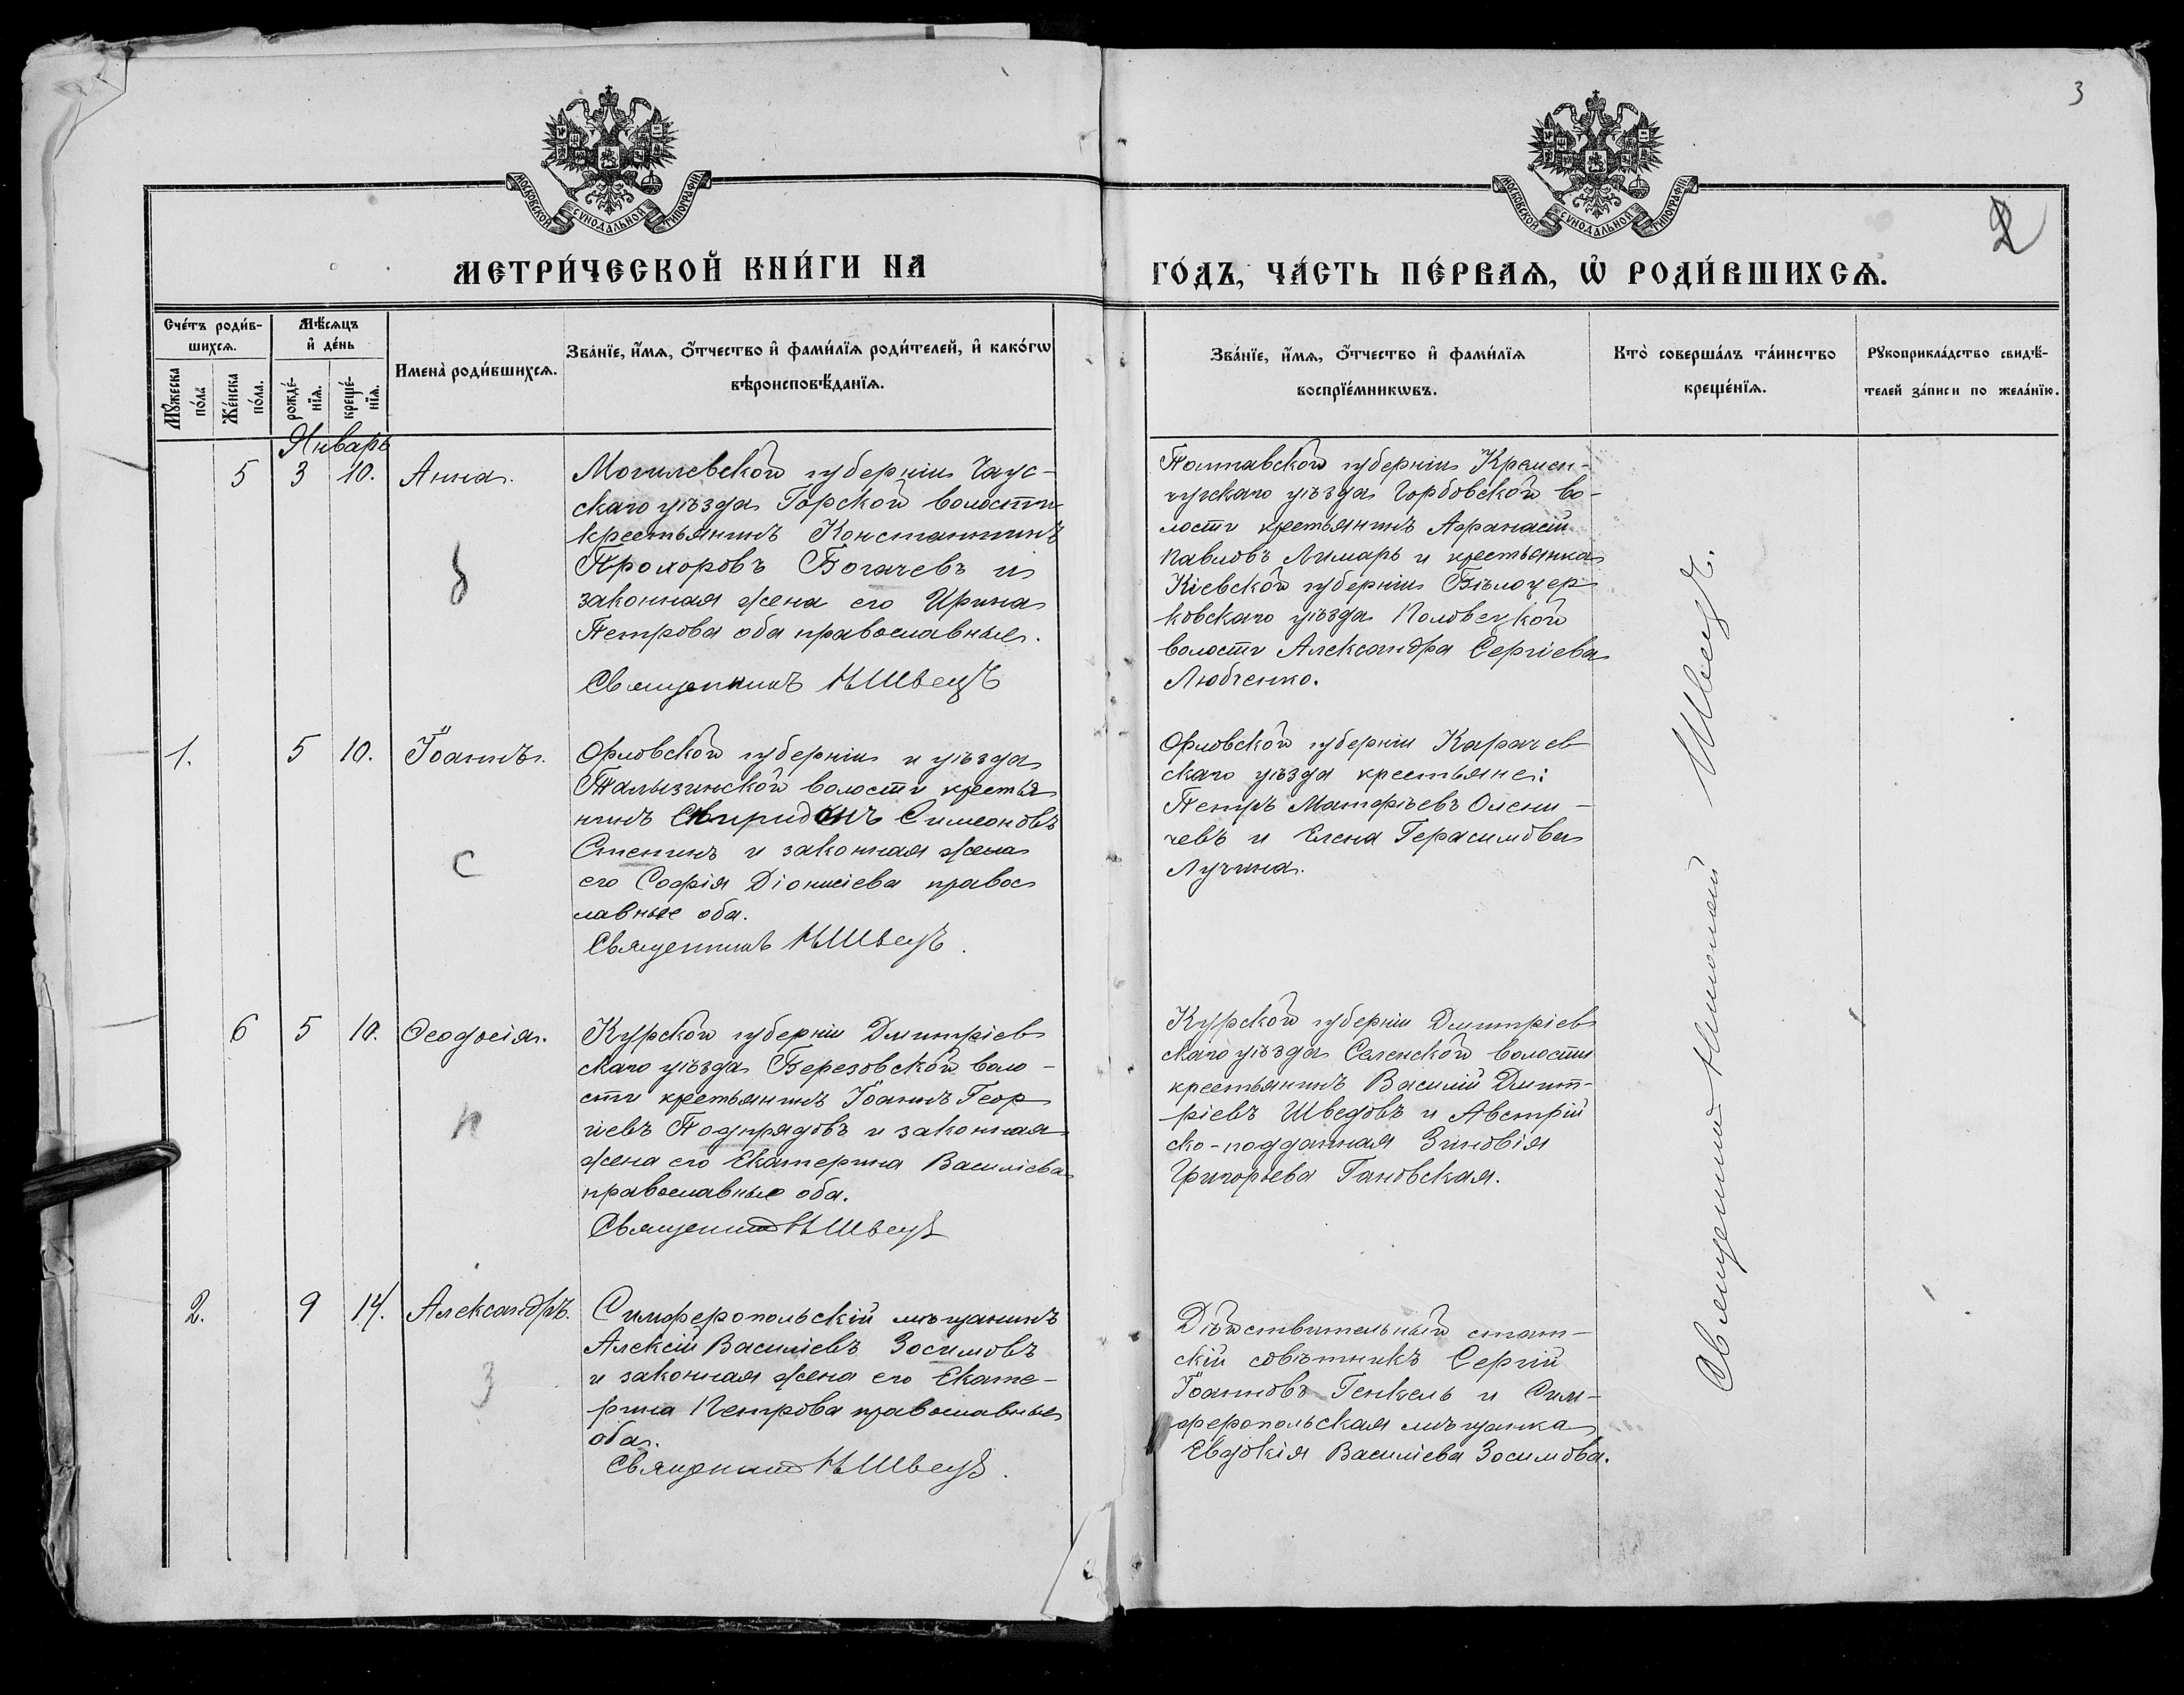 3
2
МОСКОВСКОЙ СѴНОДАЛЬНОЙ ТИПОГРАФІИ
МОСКОВСКОЙ СѴНОДАЛЬНОЙ ТИПОГРАФІИ
МЕТРИ́ЧЕСКОЙ КНИ́ГИ НА
ГО́ДЪ, ЧА́СТЬ ПЕ́РВАѦ, Ѡ҆ РОДИ́ВШИХСѦ.
Сче́тъ роди́в-
шихсѧ.
Мꙋ́жеска
по́ла
Же́нска
по́ла.
Мѣ́сѧцъ
и҆ де́нь
рожде́-
нїѧ.
креще́-
нїѧ.
Имена̀ роди́вшихсѧ.
Зва́нїе, и҆́мѧ, ѻ҆́тчество и҆ фами́лїѧ роди́телей, и҆ како́гѡ
вѣроисповѣ́данїѧ.
Зва́нїе, и҆́мѧ, ѻ҆́тчество и҆ фами́лїѧ
воспрїе́мникѡвъ.
Кто̀ соверша́лъ та́инство
креще́нїѧ.
Рꙋкоприкла́дство свидѣ́-
телей за́писи по жела́нїю.
Январь
5 3 10. Анна.
Могилевской губерніи Чаус-
скаго уѣзда Горской волости
крестьянинъ Константинъ
Прохоровъ Богачевъ и
законная жена его Ирина
Петрова оба православные.
Священникъ Н Швецъ
б
Полтавской губерніи Кремен-
чугскаго уѣзда Горбовской во-
лости крестьянинъ Афанасій
Павловъ Лимарь и крестьянка
Кіевской губерніи Бѣлоцер
ковскаго уѣзда Половецкой
волости Александра Сергіева
Любченко.
1. 5 10. Іоаннъ.
Орловской губерніи и уѣзда
Талызинской волости крестья
нинъ Свиридонъ Симеоновъ
Стенинъ и законная жена
его Софія Діонисіева правос
лавные оба.
Священникъ Н Швецъ.
с
Орловской губерніи Карачев
скаго уѣзда крестьяне:
Петръ Матѳѣевъ Олени-
чевъ и Елена Герасимова
Лучина.
6 5 10. Ѳеодосія.
Курской губерніи Дмитріев
скаго уѣзда Березовской воло-
сти крестьянинъ Іоаннъ Геор
гіевъ Подпрядовъ и законная
жена его Екатерина Василіева
православные оба.
Священникъ Н Швецъ
п
Курской губерніи Дмитріев
скаго уѣзда Селенской волости
крестьянинъ Василій Дмит-
ріевъ Шведовъ и Австрій
ско-подданная Зиновія
Григорьева Гановская.
2. 9 14. Александръ.
Симферопольскій мѣщанинъ
Алексій Василіевъ Зосимовъ
и законная жена его Екате-
рина Петрова православные
оба.
Священникъ Н Швецъ.
З
Дѣйствительный стат-
скій совѣтникъ Сергій
Іоанновъ Генкель и Сим-
феропольская мѣщанка
Евдокія Василіева Зосимова.
Священникъ Николай Швецъ.